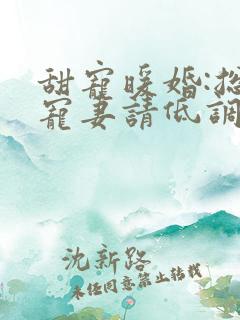 甜寵暖婚:
寵妻請低調
沈新路
未经同意禁止转载